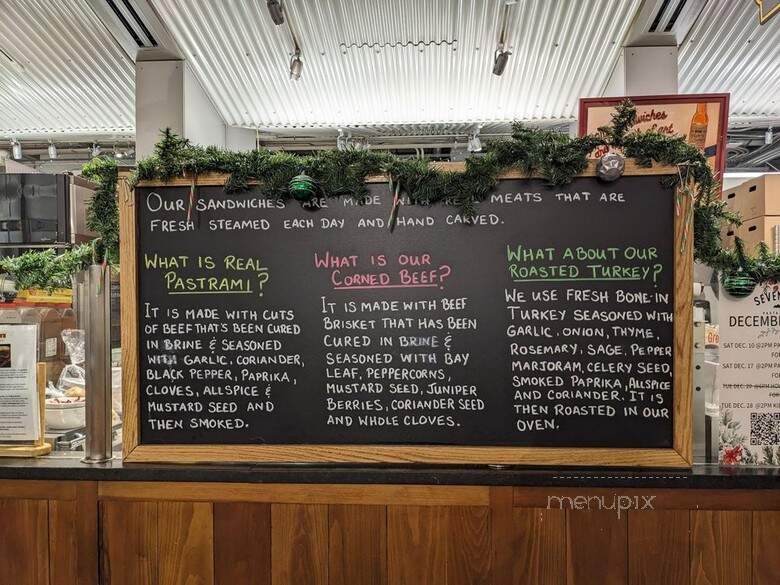 Our sandwiches are made with real meats that are
fresh steamed each day and hand carved.
What is Real
Pastrami?
It is made with cuts
of beef that's been cured
in brine & seasoned
with garlic, coriander,
black pepper, paprika,
cloves, allspice &
mustard seed and
then smoked.
What is our
Corned Beef?
It is made with beef
brisket that has been
cured in brine &
seasoned with bay
leaf, peppercorns,
mustard seed, juniper
berries, coriander seed
and whole cloves.
What about our
Roasted Turkey?
We use fresh bone-in
turkey seasoned with
garlic, onion, thyme,
rosemary, sage, pepper
marjoram, celery seed,
smoked paprika, allspice
and coriander. It is
then roasted in our
oven.
DECEMB
SAT DEC. 10 @2PM
SAT DEC. 17 @2PM
TUE DEC. 20 @6PM
TUE DEC. 28 @2PM
menupix